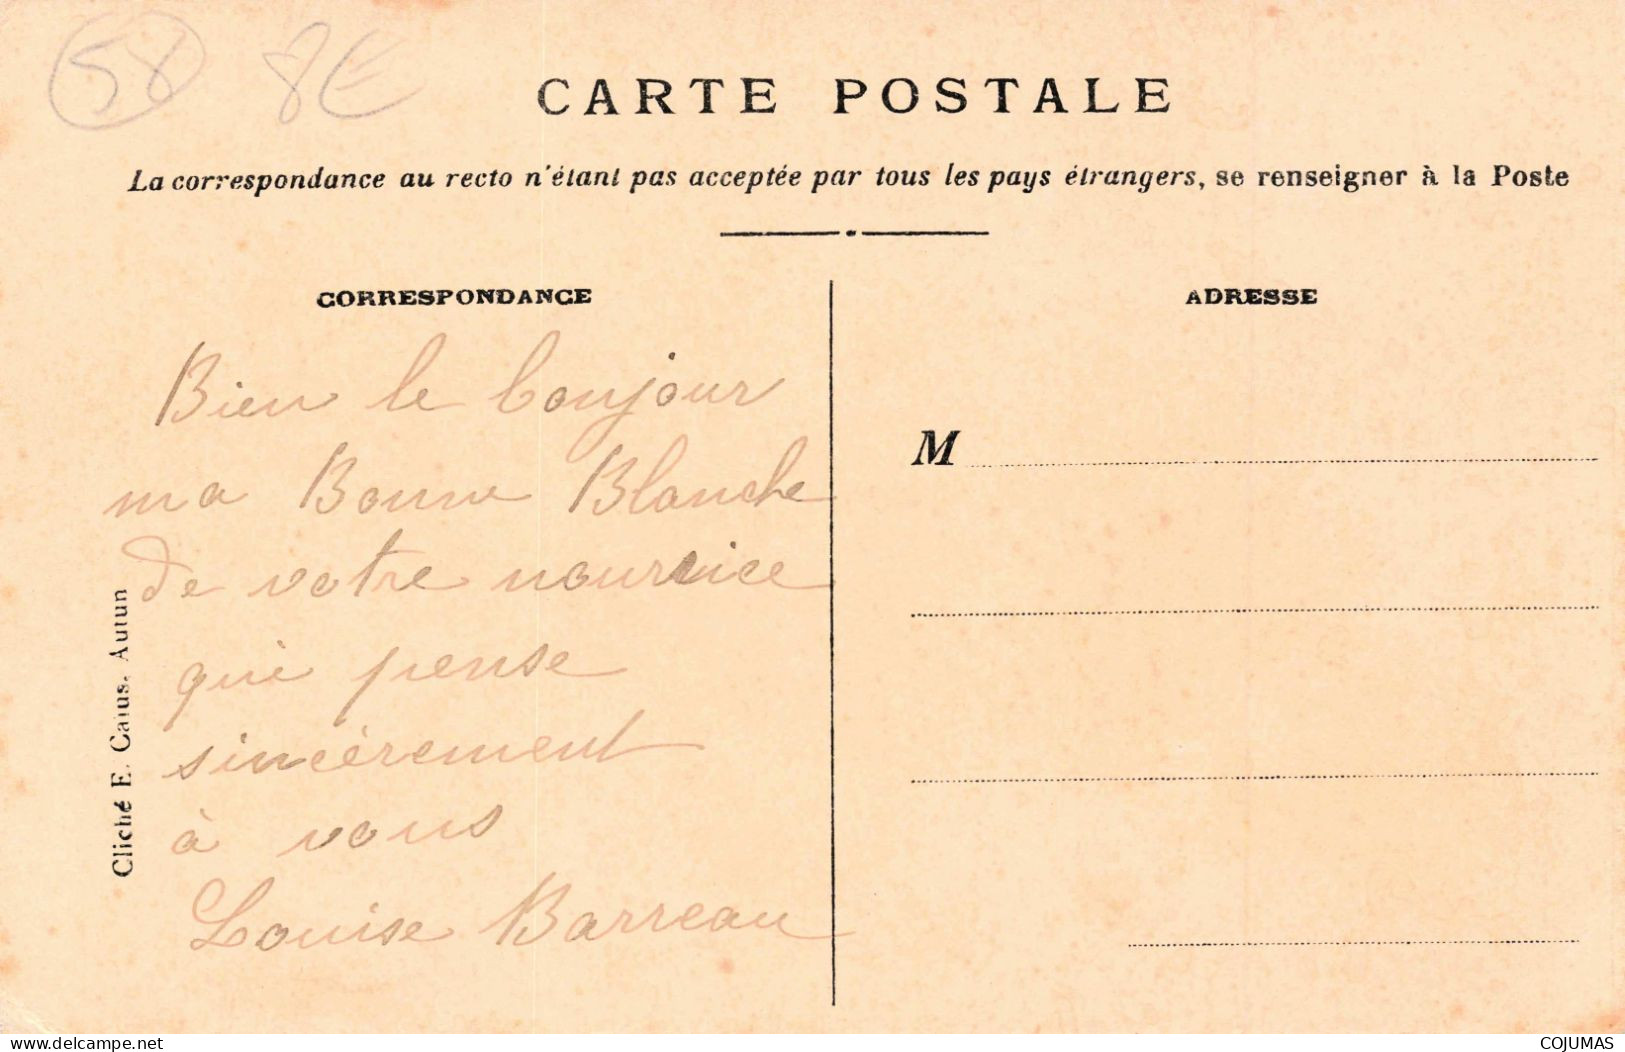 58 8E
CARTE POSTALE
La correspondance au recto n'étant pas acceptée par tous les pays étrangers, se renseigner à la Poste
CORRESPONDANCE
Bien le bonjour
ma Bonne Blanche
de votre nourrice
qui pense
sincèrement
à vous
Louise Barreau
Cliché E. Caius. Autun
ADRESSE
M
delcampe.net
COJUMAS